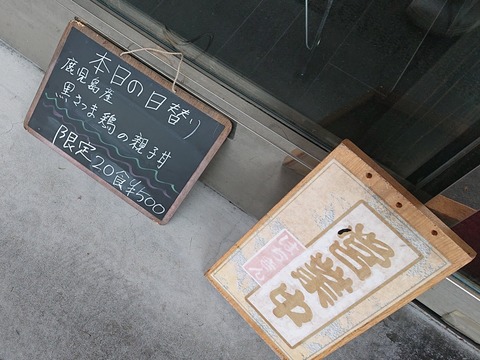 本日の日替り
鹿児島産
黒さつま鶏の親子丼
限定20食¥500
営業中